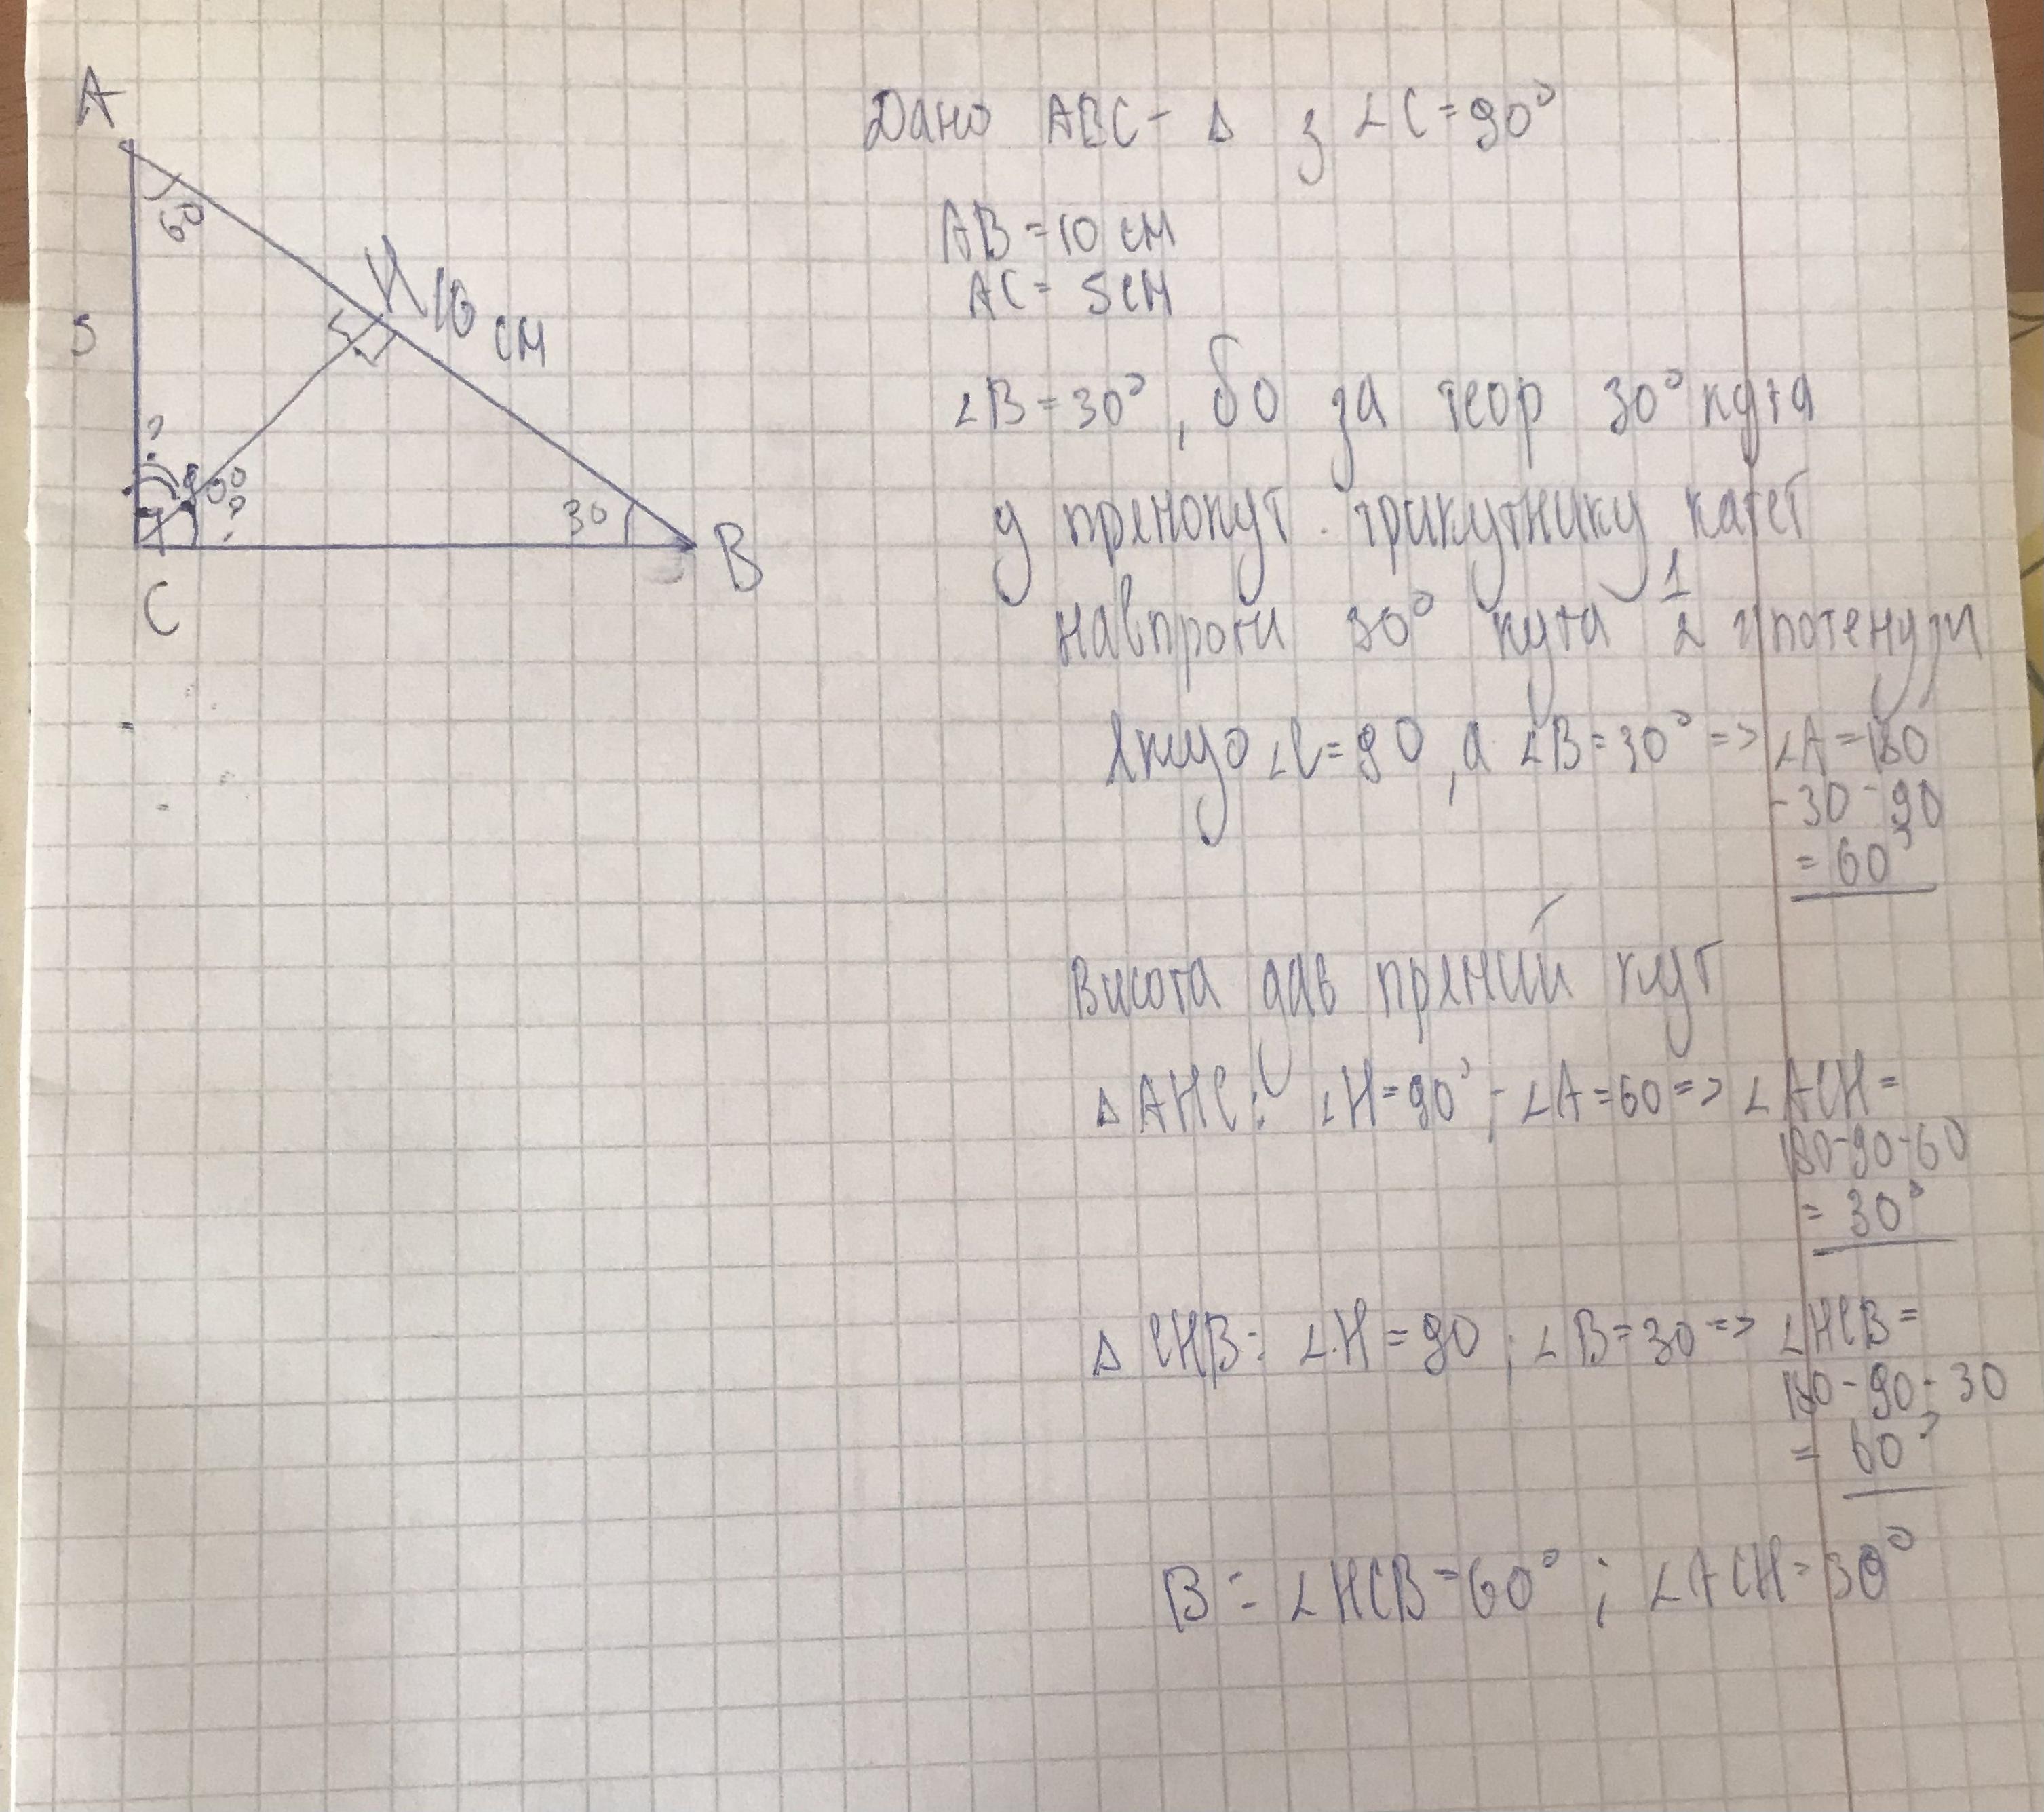 A
60
H
10 см
5
?
90°
?
30
B
C
Дано ABC - Δ з ∠C = 90°
AB = 10 см
AC = 5 см
∠B = 30°, бо за теор 30° кута
у прямокут. трикутнику катет
навпроти 30° кута 1/2 гіпотенузи
Якщо ∠C = 90, а ∠B = 30° => ∠A = 180
- 30 - 90
= 60°
Висота дає прямий кут
Δ AHC: ∠H = 90°; ∠A = 60 => ∠ACH =
180-90-60
= 30°
Δ CHB: ∠H = 90; ∠B = 30 => ∠HCB =
180 - 90 - 30
= 60°
B: ∠HCB = 60°; ∠ACH = 30°